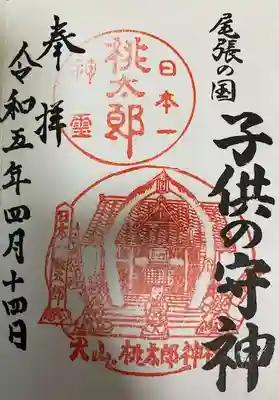 尾張の国
子供の守神
日本一
桃太郎
神霊
犬山 桃太郎神社
奉拝
令和五年四月十四日